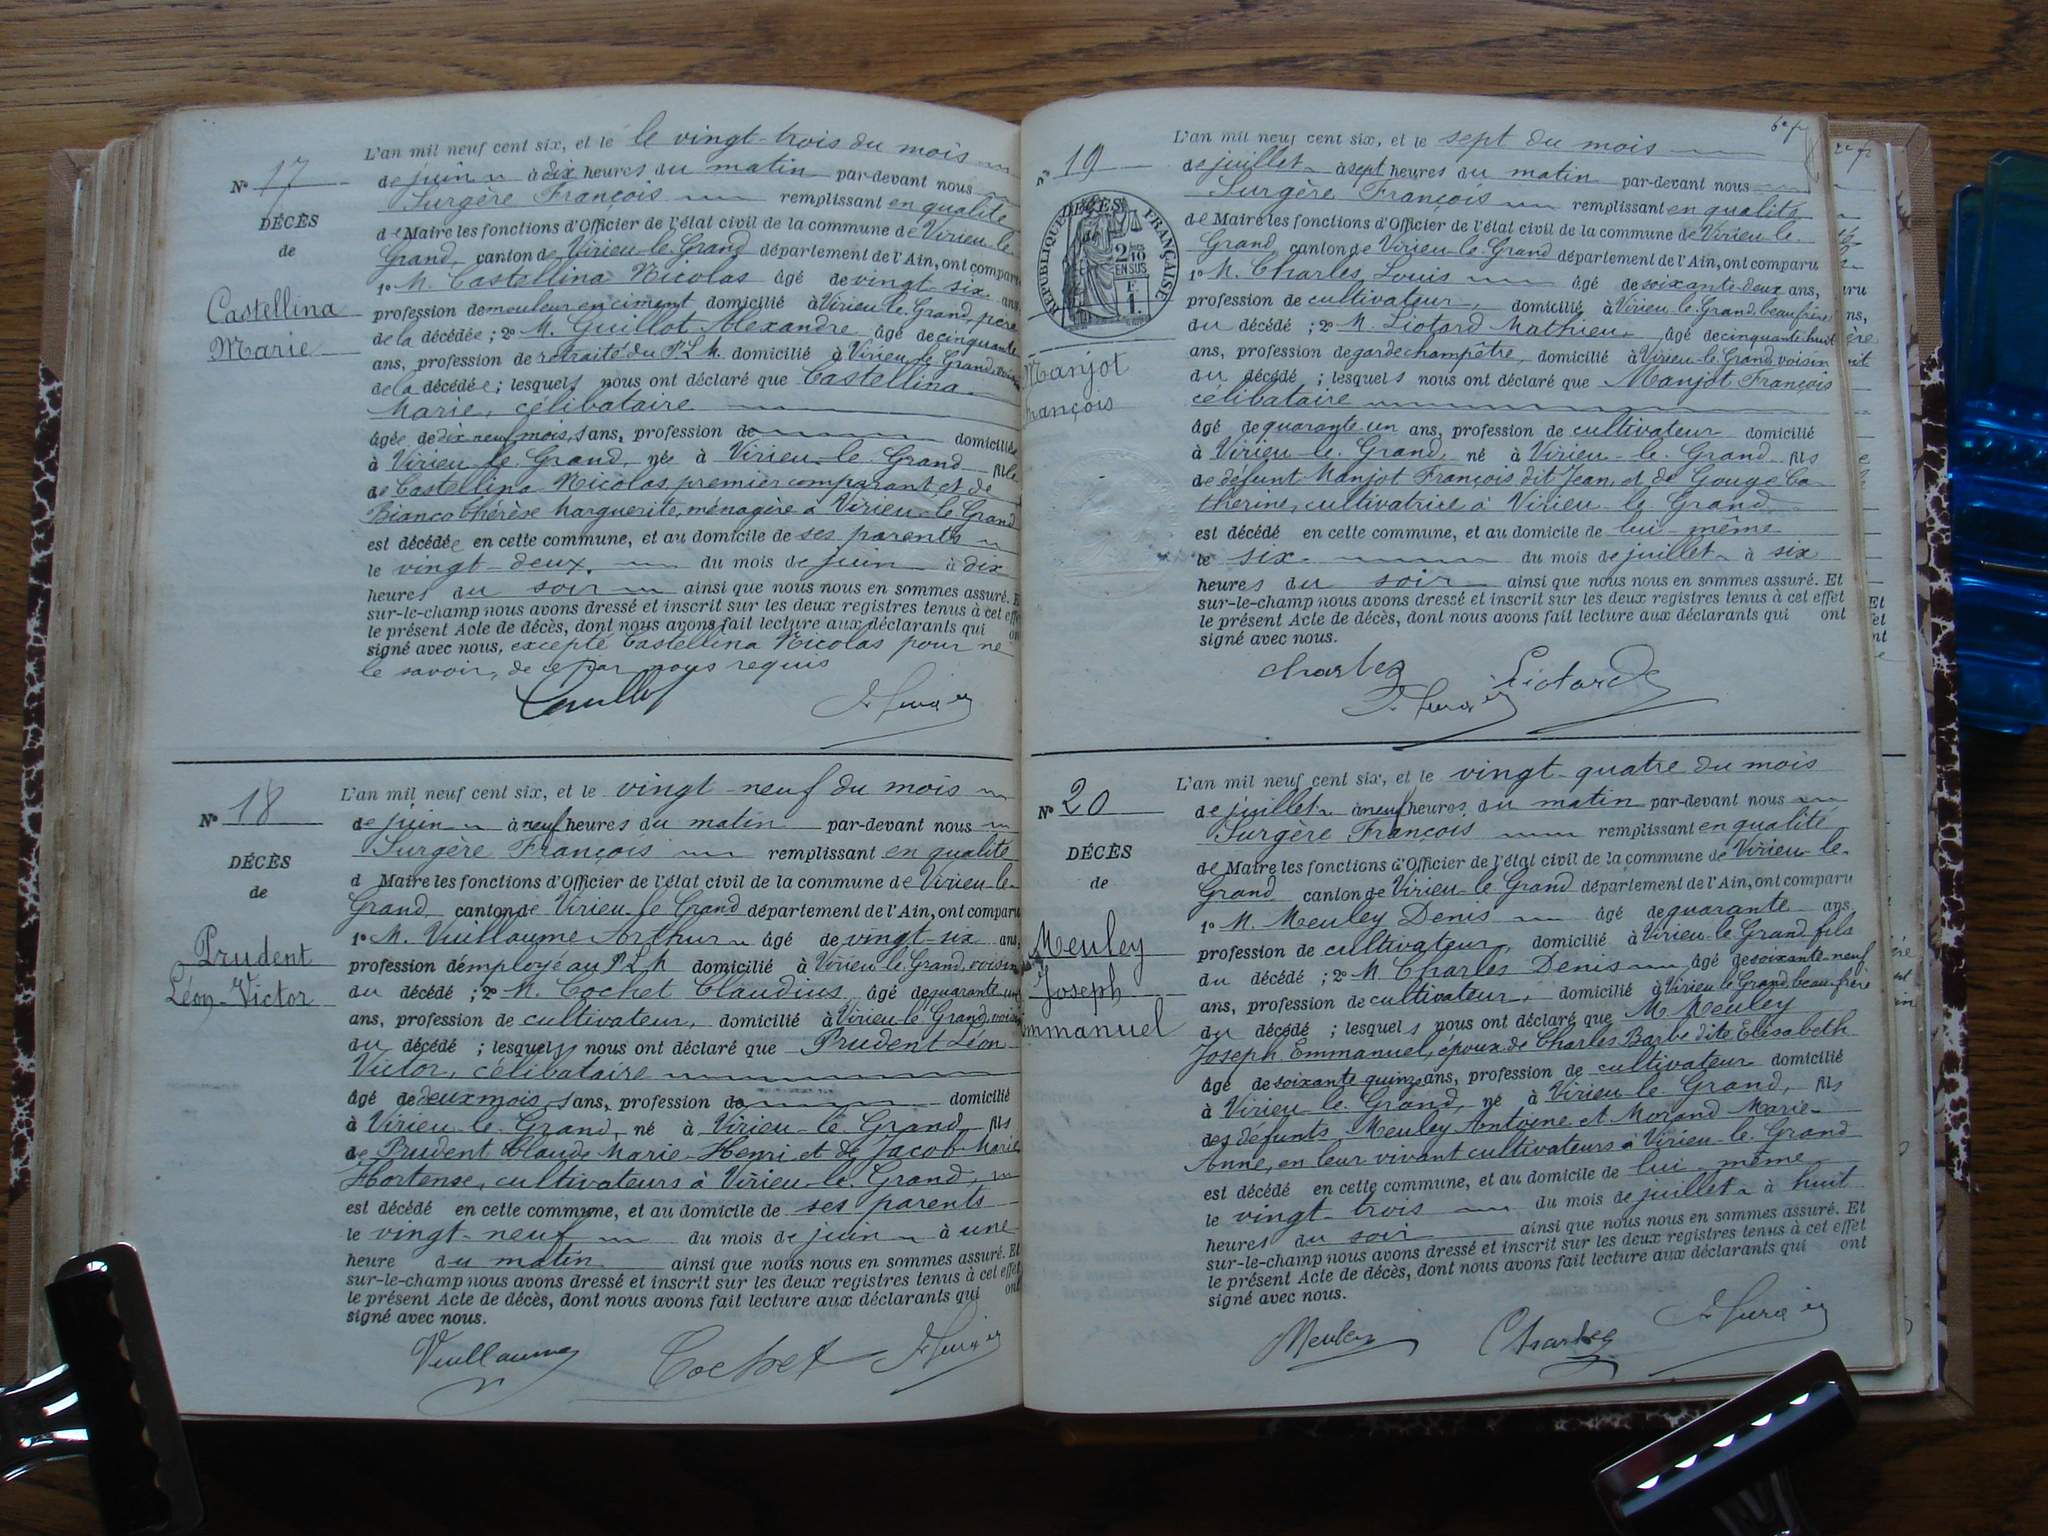 L'an mil neuf cent six, et le le vingt-trois du mois
N° 17
de juin à dix heures du matin par-devant nous
Surgère François remplissant en qualité
DÉCÈS
de Maire les fonctions d'Officier de l'état civil de la commune de Virieu-le-
de
Grand, canton de Virieu-le-Grand département de l'Ain, ont comparu
1° M. Castellina Nicolas âgé de vingt-six ans,
Castellina
profession de mouleur en ciment domicilié à Virieu-le-Grand, père
Marie
de la décédée ; 2° M. Guillot Alexandre âgé de cinquante
ans, profession de retraité du P.L.M. domicilié à Virieu-le-Grand, voisin
de la décédée ; lesquels nous ont déclaré que Castellina
Marie, célibataire
âgée de dix neuf mois, ans, profession de domiciliée
à Virieu-le-Grand, née à Virieu-le-Grand fille
de Castellina Nicolas premier comparant et de
Bianco Thérèse Marguerite, ménagère à Virieu-le-Grand
est décédée en cette commune, et au domicile de ses parents
le vingt-deux du mois de juin à dix
heures du soir ainsi que nous nous en sommes assuré. Et
sur-le-champ nous avons dressé et inscrit sur les deux registres tenus à cet effet
le présent Acte de décès, dont nous avons fait lecture aux déclarants qui ont
signé avec nous, excepté Castellina Nicolas pour ne
le savoir, de ce par nous requis
L'an mil neuf cent six, et le vingt-neuf du mois
N° 18
de juin à neuf heures du matin par-devant nous
Surgère François remplissant en qualité
DÉCÈS
d Maire les fonctions d'Officier de l'état civil de la commune de Virieu-le-
de
Grand, canton de Virieu-le-Grand département de l'Ain, ont comparu
1° M. Vuillaume Arthur âgé de vingt-six ans,
Prudent
profession d'employé au P.L.M. domicilié à Virieu-le-Grand, voisin
Léon-Victor
du décédé ; 2° M. Cochet Claudius âgé de quarante-un
ans, profession de cultivateur, domicilié à Virieu-le-Grand, voisin
du décédé ; lesquels nous ont déclaré que Prudent Léon
Victor, célibataire
âgé de deux mois, ans, profession de domicilié
à Virieu-le-Grand, né à Virieu-le-Grand fils
de Prudent Claude Marie-Henri et de Jacob Marie
Hortense, cultivateurs à Virieu-le-Grand,
est décédé en cette commune, et au domicile de ses parents
le vingt-neuf du mois de juin à une
heure du matin ainsi que nous nous en sommes assuré. Et
sur-le-champ nous avons dressé et inscrit sur les deux registres tenus à cet effet
le présent Acte de décès, dont nous avons fait lecture aux déclarants qui ont
signé avec nous.
Vuillaume Cochet
L'an mil neuf cent six, et le sept du mois
N° 19
de juillet à sept heures du matin par-devant nous
Surgère François remplissant en qualité
DÉCÈS
RÉPUBLIQUE FRANÇAISE
2/10 EN SUS
de Maire les fonctions d'Officier de l'état civil de la commune de Virieu-le-
Grand canton de Virieu-le-Grand département de l'Ain, ont comparu
1° M. Charles Louis âgé de soixante-deux ans,
profession de cultivateur, domicilié à Virieu-le-Grand, beau-frère
du décédé ; 2° M. Liotard Mathieu âgé de cinquante-huit
Manjot
ans, profession de garde champêtre, domicilié à Virieu-le-Grand, voisin
François
du décédé ; lesquels nous ont déclaré que Manjot François
célibataire
âgé de quarante-un ans, profession de cultivateur domicilié
à Virieu-le-Grand, né à Virieu-le-Grand fils
de défunt Manjot François dit Jean, et de Gouge Ca-
therine, cultivatrice à Virieu-le-Grand,
est décédé en cette commune, et au domicile de lui-même
le six du mois de juillet à six
heures du soir ainsi que nous nous en sommes assuré. Et
sur-le-champ nous avons dressé et inscrit sur les deux registres tenus à cet effet
le présent Acte de décès, dont nous avons fait lecture aux déclarants qui ont
signé avec nous.
Charles Liotard
L'an mil neuf cent six, et le vingt-quatre du mois
N° 20
de juillet à neuf heures du matin par-devant nous
Surgère François remplissant en qualité
DÉCÈS
de Maire les fonctions d'Officier de l'état civil de la commune de Virieu-le-
de
Grand canton de Virieu-le-Grand département de l'Ain, ont comparu
1° M. Meuley Denis âgé de quarante ans,
Meuley
profession de cultivateur, domicilié à Virieu-le-Grand fils
Joseph
du décédé ; 2° M Charles Denis âgé de soixante-neuf
ans, profession de cultivateur, domicilié à Virieu-le-Grand, beau-frère
Emmanuel
du décédé ; lesquels nous ont déclaré que M. Meuley
Joseph Emmanuel, époux de Charles Barbe dite Elisabeth
âgé de soixante quinze ans, profession de cultivateur domicilié
à Virieu-le-Grand, né à Virieu-le-Grand, fils
des défunts Meuley Antoine et Morand Marie-
Anne, en leur vivant cultivateurs à Virieu-le-Grand
est décédé en cette commune, et au domicile de lui-même
le vingt-trois du mois de juillet à huit
heures du soir ainsi que nous nous en sommes assuré. Et
sur-le-champ nous avons dressé et inscrit sur les deux registres tenus à cet effet
le présent Acte de décès, dont nous avons fait lecture aux déclarants qui ont
signé avec nous.
Meuley Charles